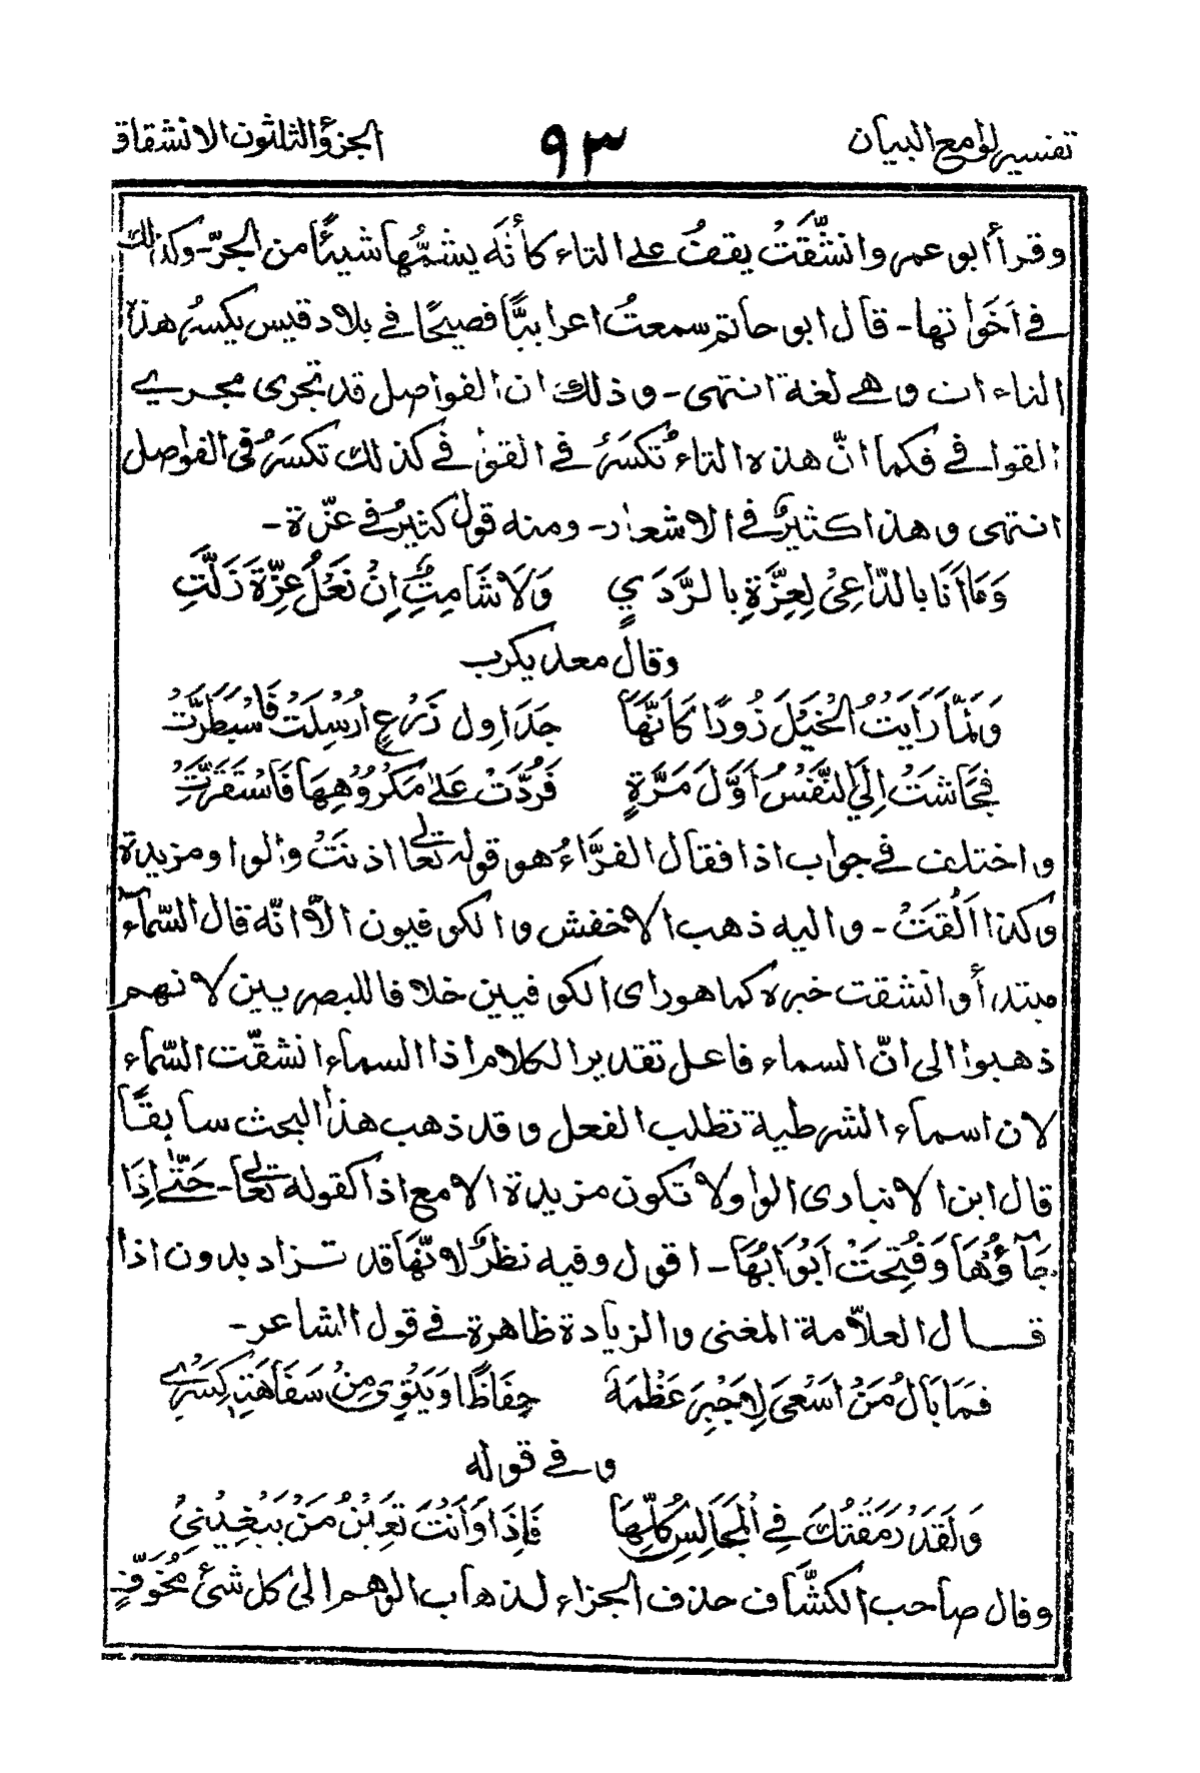 تفسير لوامع البيان ٩٣ الجزؤ الثلثون الانشقاق
وقرأ أبو عمرو انشّقّتْ يقف على التاء كأنّه يشمّها شيئًا من الجرّ- وكذالك
في أخَواتها- قال ابو حاتم سمعتُ اعرابيًّا فصيحًا في بلاد قيس يكسرُ هذه
التاءات وهي لغة انتهى- وذلك ان الفواصل قد تجرى مجرى
القوافي فكما انّ هذه التاء تُكسَرُ في القوافي كذلك تكسَرُ في الفواصل
انتهى وهذا كثيرٌ في الاشعار- ومنه قول كثيرُ في عزّة-
وَمَا أَنَا بِالدّاعِىْ لِعِزَّةِ بِالرَّدَي وَلَا شَامِتٍ اِنْ نَعْلُ عِزَّةَ ذَلَّتِ
وقال معديكرب
وَلَمَّا رَايَتُ الْخَيْلَ زُورًا كَاَنَّهَا جَدَاوِل زَرْعٍ اُرْسِلَتْ فَاسْبَطَرَّتْ
فَجَاشَتْ اِلَيَّ النَّفْسُ اَوَّلَ مَرَّةٍ فَرُدَّتْ عَلىٰ مَكْرُوْهِهَا فَاسْتَقَرَّتِ
واختلف في جواب اذا فقال الفرّاءُ هو قوله تعالى اذنَتْ والواو مزيدة
وكذا اَلْقَتْ- واليه ذهب الاخفش والكوفيون الاّ انّه قال السّماء
مبتدأ وانشقت خبره كما هو راى الكوفيين خلافا للبصريين لانهم
ذهبوا الى انّ السماء فاعل تقدير الكلام اذا السماء انشقّت السّماء
لان اسماء الشرطية تطلب الفعل وقد ذهب هذا البحث سابقًا
قال ابن الانبارى الواو لا تكون مزيدة الا مع اذا كقوله تعالى- حَتّٰى اِذَا
جَآؤُهَا وَفُتِحَتْ اَبْوَابُهَا- اقول وفيه نظرٌ لانّها قد تزاد بدون اذا
قال العلّامة المغنى والزيادة ظاهرة في قول الشاعر-
فَمَا بَالُ مَنْ اَسْعَى لِاَجْبِرَ عَظْمَهُ حِفَاظًا وَيَنْوِى مِنْ سَفَاهَتِهِ كَسْرِيْ
وفي قوله
وَلَقَدْ رَمَقْتُكَ فِي الْمَجَالِسِ كُلِّهَا فَاِذَا وَاَنْتَ تَعِيْنُ مَنْ يَبْغِيْنِيْ
وقال صاحب الكشّاف حذف الجزاء لذهاب الوهم الى كل شئ مخوّفٍ